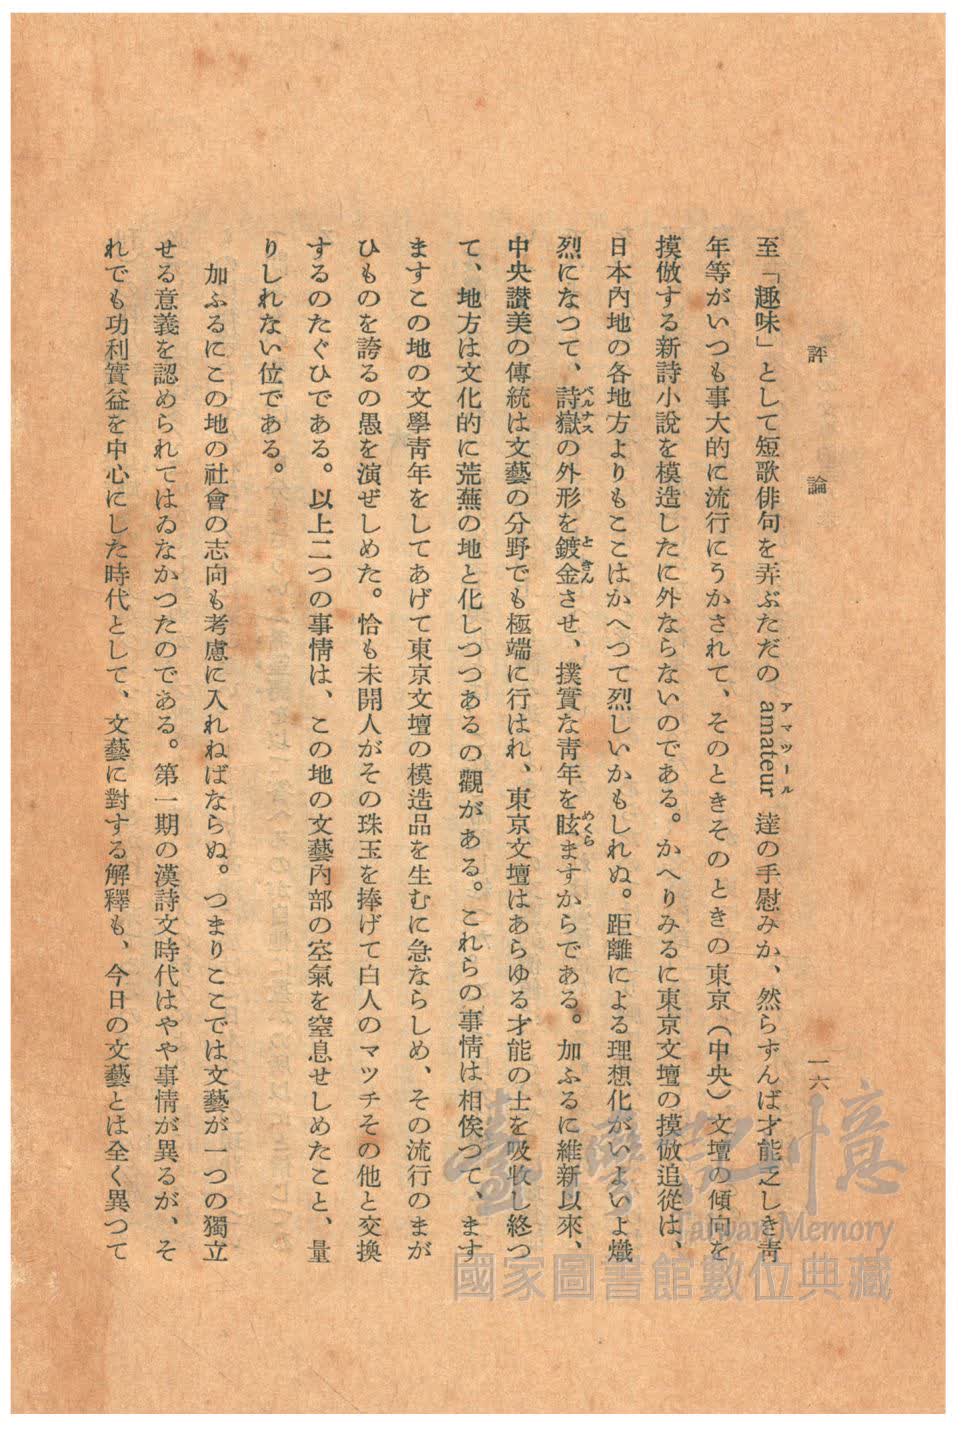 評論
一六
至「趣味」として短歌俳句を弄ぶただの amateur 達の手慰みか、然らずんば才能乏しき靑
アマツール
年等がいつも事大的に流行にうかされて、そのときそのときの東京（中央）文壇の傾向を
摸倣する新詩小說を模造したに外ならないのである。かへりみるに東京文壇の摸倣追從は、
日本內地の各地方よりもここはかへつて烈しいかもしれぬ。距離による理想化がいよいよ熾
烈になつて、詩嶽の外形を鍍金させ、撲實な靑年を眩ますからである。加ふるに維新以來、
ペルナス
ときん
めくら
中央讃美の傳統は文藝の分野でも極端に行はれ、東京文壇はあらゆる才能の士を吸收し終つ
て、地方は文化的に荒蕪の地と化しつつあるの觀がある。これらの事情は相俟つて、ます
ますこの地の文學靑年をしてあげて東京文壇の模造品を生むに急ならしめ、その流行のまが
ひものを誇るの愚を演ぜしめた。恰も未開人がその珠玉を捧げて白人のマツチその他と交換
するのたぐひである。以上二つの事情は、この地の文藝內部の空氣を窒息せしめたこと、量
りしれない位である。
加ふるにこの地の社會の志向も考慮に入れねばならぬ。つまりここでは文藝が一つの獨立
せる意義を認められてはゐなかつたのである。第一期の漢詩文時代はやや事情が異るが、そ
れでも功利實益を中心にした時代として、文藝に對する解釋も、今日の文藝とは全く異つて
臺灣記憶
Taiwan Memory
國家圖書館數位典藏